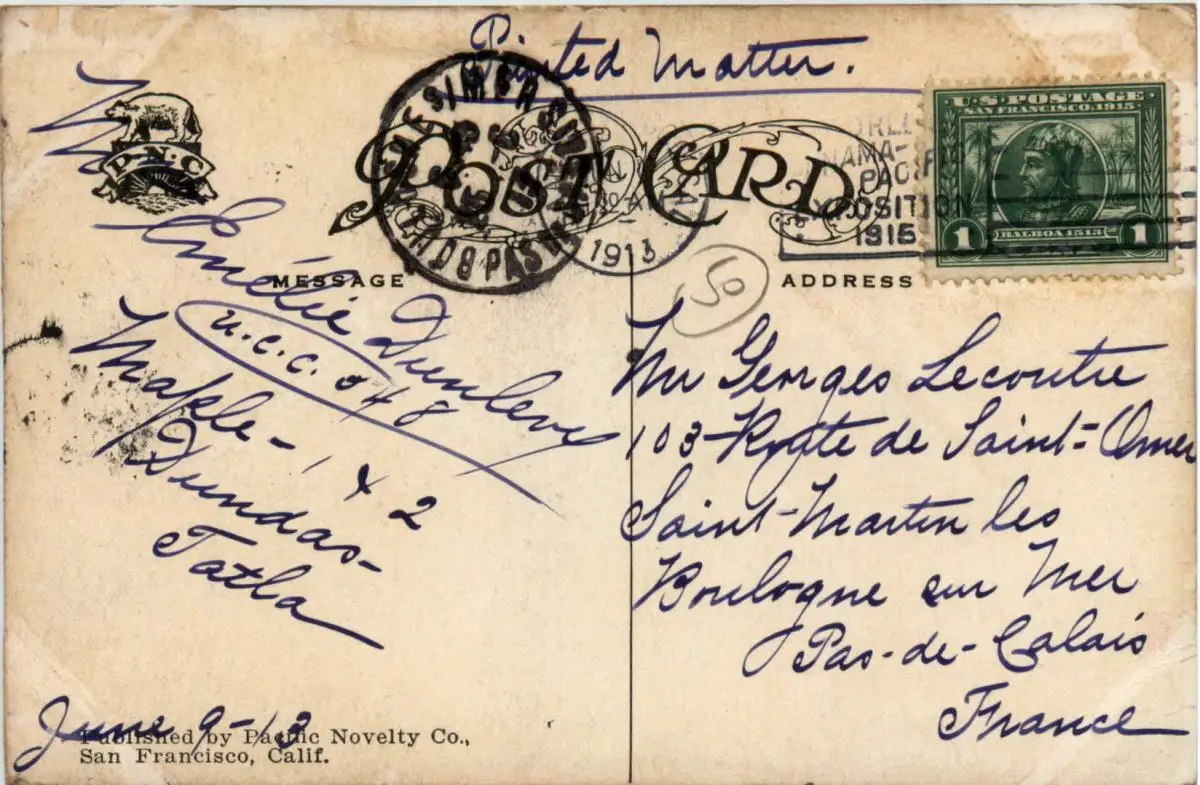 Printed Matter.
P.N.C
POST CARD
1913
PACIFIC
EXPOSITION
1915
U.S. POSTAGE
SAN FRANCISCO, 1915
1 BALBOA 1513 1
50
MESSAGE
Emélie Dunleve
U.C.C. 548
Maple - 1 & 2
Dundas -
Tatla
June 9-13
Published by Pacific Novelty Co.,
San Francisco, Calif.
ADDRESS
Mr Georges Lecoutre
103 - Route de Saint=Omer
Saint-Martin les
Boulogne sur Mer
Pas-de-Calais
France